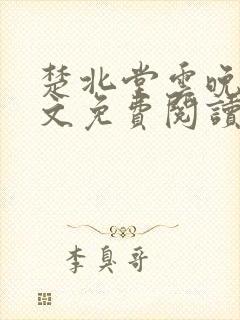 楚北堂雲晚
文免費閱讀
李臭哥